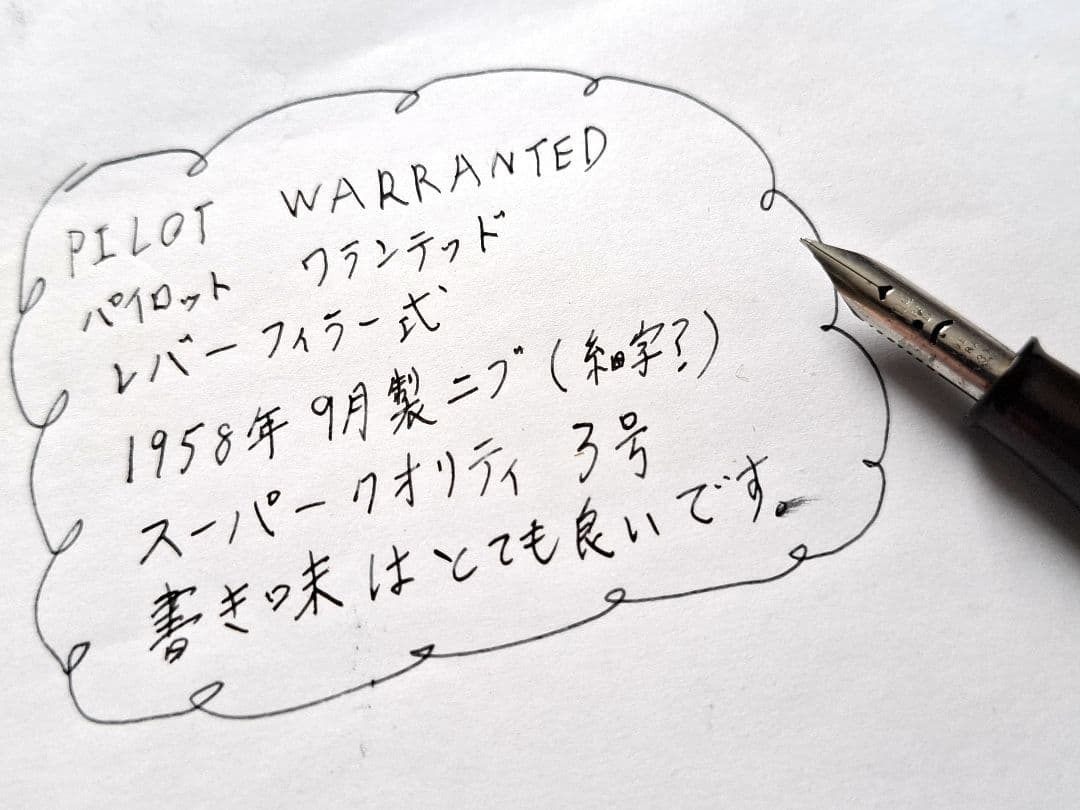 PILOT WARRANTED
パイロット ワランテッド
レバーフィラー式
1958年9月製ニブ(細字?)
スーパークオリティ 3号
書き味はとても良いです。